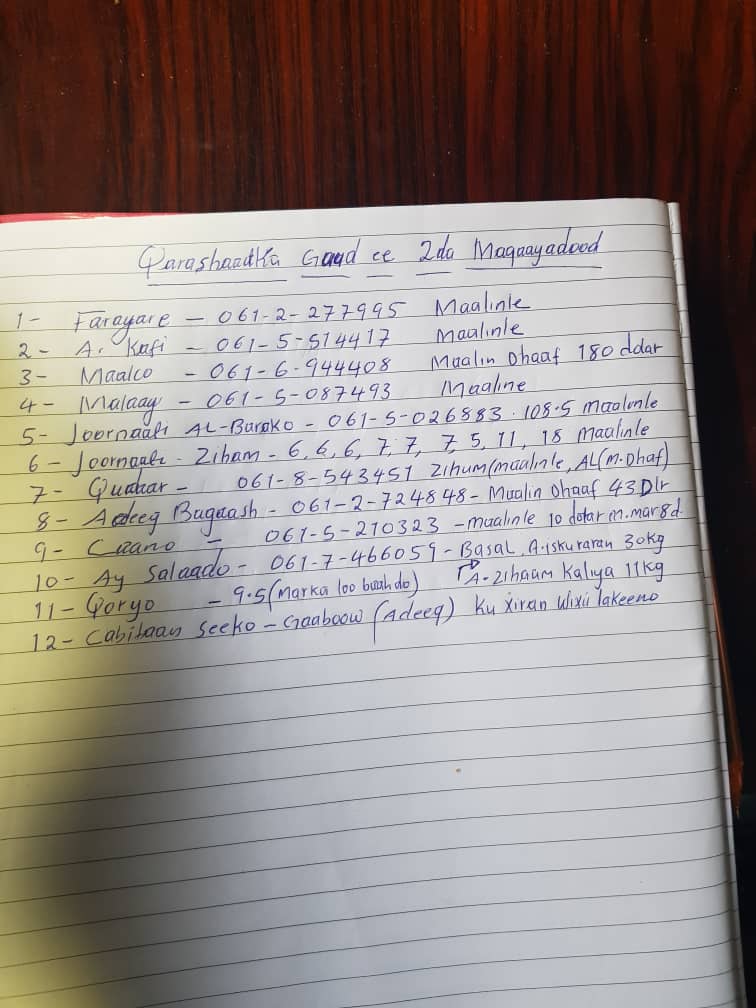 Qarashaadka Gaud ee 2da Maqaayadood
1- Farayare - 061-2-277995 Maalinle
2- A. Kafi - 061-5-514417 Maalinle
3- Maalco - 061-6-944408 Maalin Dhaaf 180 ddar
4- Malaay - 061-5-087493 Maaline
5- Joornaati AL-Barako - 061-5-026883. 108.5 maalinle
6- Joornaati - Ziham - 6, 6, 6, 7, 7, 7, 5, 11, 18 Maalinle
7- - 061-8-543451 Zihum(maalinle, AL(m.Dhaf)
8- Adeeg Bagaash - 061-2-724848- Maalin Dhaaf 43Dlr
9- Caano - 061-5-210323 -maalinle 10 dolar m.mar 8d.
10- Ay Salaado- 061-7-466059- Basal, A.iskuraran 30kg
11- Qoryo - 9.5(Marka loo baahdo) A-zihaam Kaliya 11kg
12- Cabitaan Seeko - Gaaboow (Adeeg) Ku xiran wixii lakeeno